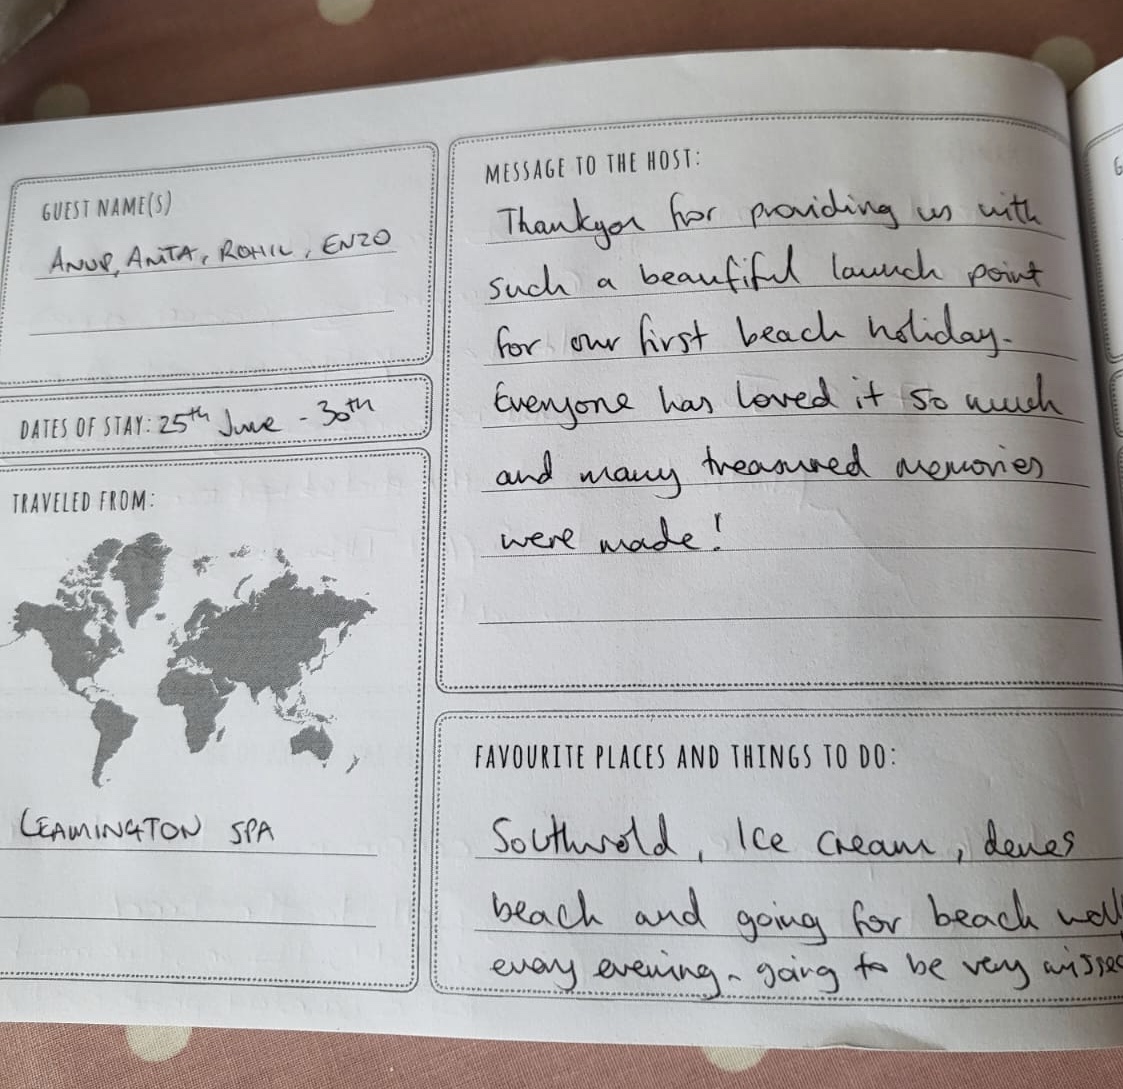 GUEST NAME(S)
ANUP, ANITA, ROHIL, ENZO
DATES OF STAY: 25th June - 30th
TRAVELED FROM:
LEAMINGTON SPA
MESSAGE TO THE HOST:
Thankyou for providing us with
such a beautiful launch point
for our first beach holiday.
Everyone has loved it so much
and many treasured memories
were made!
FAVOURITE PLACES AND THINGS TO DO:
Southwold, Ice cream, denes
beach and going for beach
every evening - going to be very